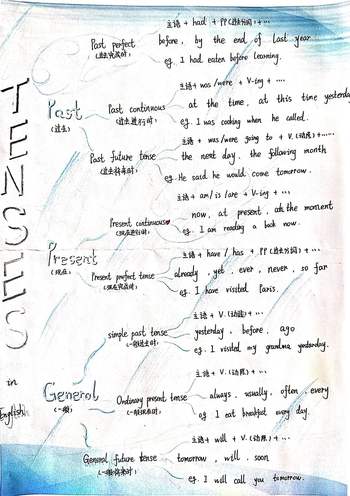 TENSES
in
English
Past
(过去)
Past perfect
(过去完成时)
主语 + had + PP (过去分词) + ...
before, by the end of last year
eg. I had eaten before learning.
Past continuous
(过去进行时)
主语 + was / were + V-ing + ....
at the time, at this time yesterday
eg. I was cooking when he called.
Past future tense
(过去将来时)
主语 + was / were going to + V. (动原) + ......
the next day, the following month
eg. He said he would come tomorrow.
Present
(现在)
Present continuous
(现在进行时)
主语 + am / is / are + V-ing + ...
now, at present, at the moment
eg. I am reading a book now.
Present perfect tense
(现在完成时)
主语 + have / has + PP (过去分词) + ...
already, yet, ever, never, so far
eg. I have visited Paris.
General
(一般)
simple past tense
(一般过去时)
主语 + V. (动过) + ...
yesterday, before, ago
eg. I visited my grandma yesterday.
Ordinary present tense
(一般现在时)
主语 + V. (动原) + ...
always, usually, often, every
eg I eat breakfast every day.
General future tense
(一般将来时)
主语 + will + V. (动原) + ...
tomorrow, will, soon
eg. I will call you tomorrow.